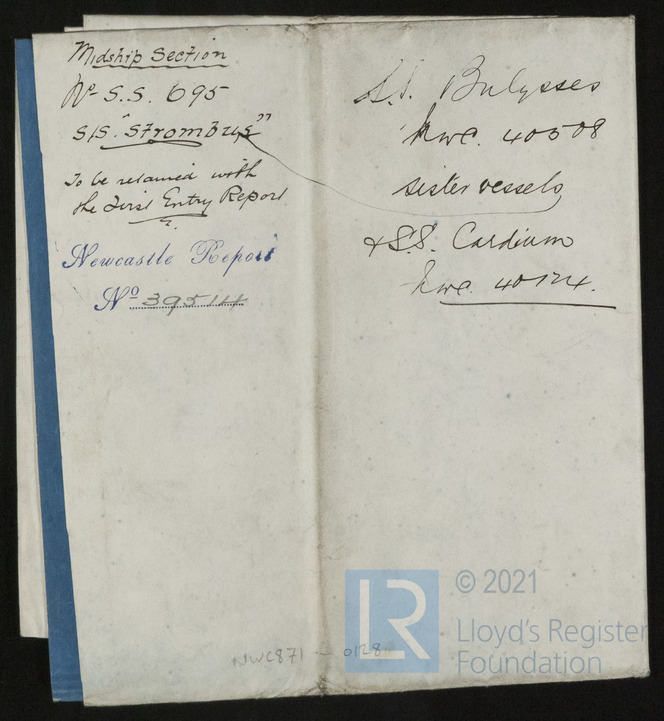 Midship Section
No S.S. 695
S/S. "Strombus"
To be retained with
the First Entry Report
Newcastle Report
No 39514
S.S. Bulysses
Nwc. 40508
sister vessels
& S.S. Cardium
Nwc. 40124.
NWC871 - 0128
LR
© 2021
Lloyd's Register
Foundation